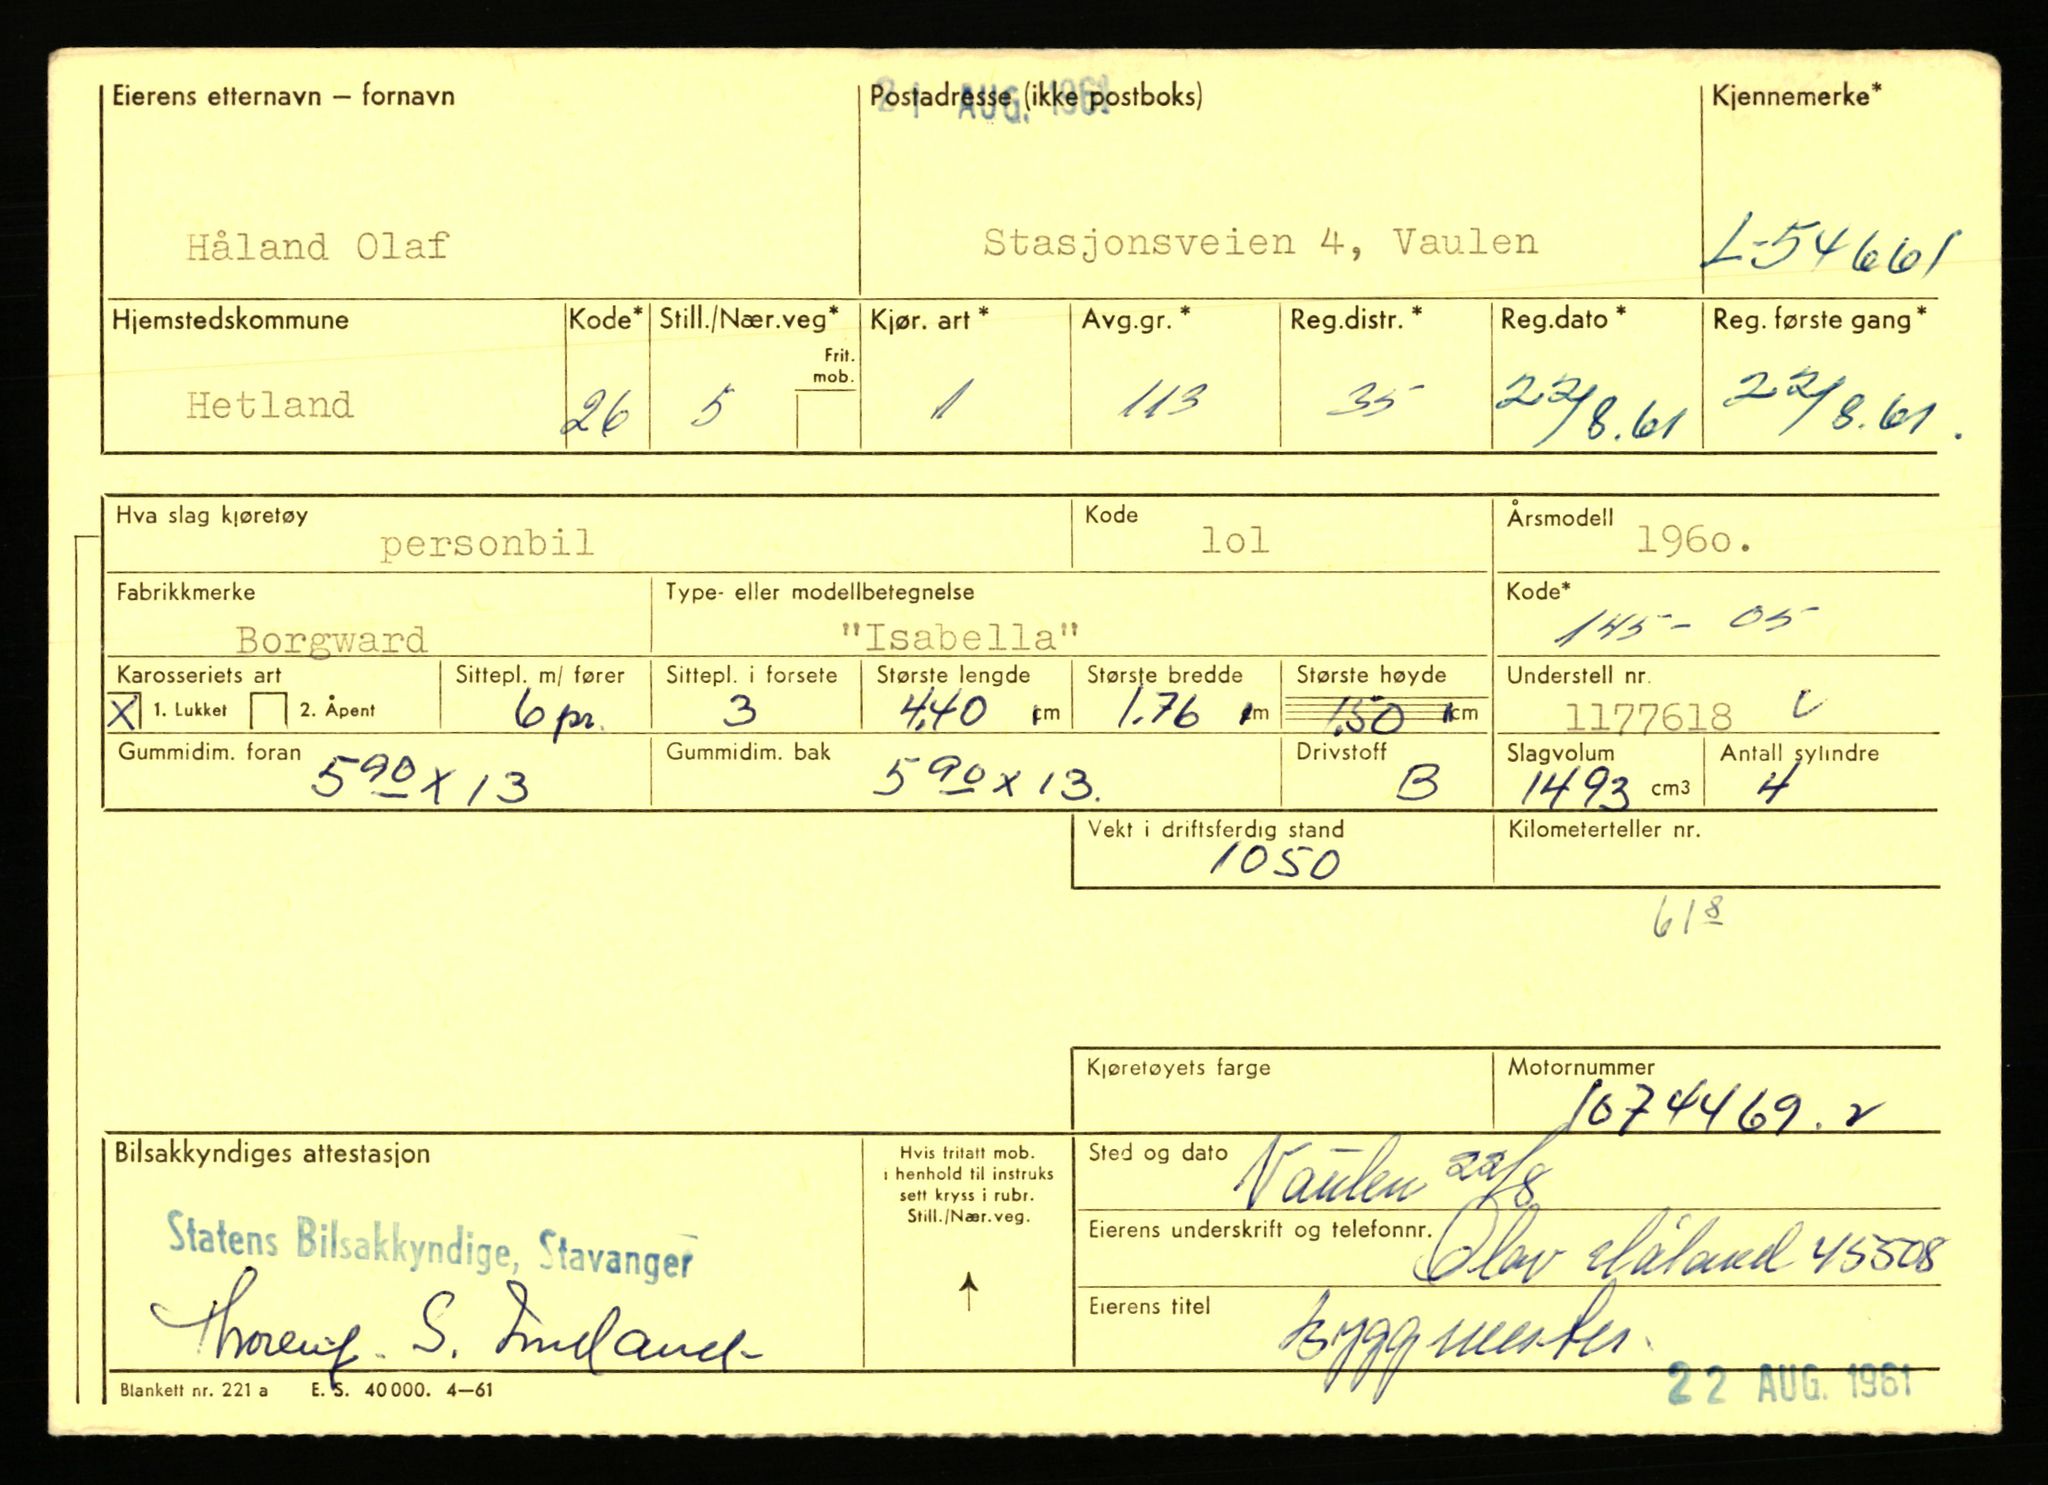 Eierens etternavn – fornavn Postadresse (ikke postboks) Kjennemerke*
21 AUG. 1961
Håland Olaf Stasjonsveien 4, Vaulen L-54661
Hjemstedskommune Kode* Still./Nær.veg* Kjør. art* Avg.gr.* Reg.distr.* Reg.dato* Reg. første gang*
Frit. mob.
Hetland 26 5 1 113 35 22/8.61 22/8.61.
Hva slag kjøretøy Kode Årsmodell
personbil lol 196o.
Fabrikkmerke Type- eller modellbetegnelse Kode*
Borgward "Isabella" 145-05
Karosseriets art Sittepl. m/ fører Sittepl. i forsete Største lengde Største bredde Største høyde Understell nr.
X 1. Lukket 2. Åpent 6 pr. 3 4,40 cm 1.76 m 1.50 cm 1177618
Gummidim. foran Gummidim. bak Drivstoff Slagvolum Antall sylindre
590 x 13 590 x 13. B 1493 cm3 4
Vekt i driftsferdig stand Kilometerteller nr.
1050
618
Kjøretøyets farge Motornummer
1074469.
Bilsakkyndiges attestasjon Hvis fritatt mob. i henhold til instruks sett kryss i rubr. Still./Nær.veg. Sted og dato Vaulen 22/8
Statens Bilsakkyndige, Stavanger Eierens underskrift og telefonnr. Olav Håland 45508
S. Eierens titel byggmester.
Blankett nr. 221 a E. S. 40 000. 4–61 22 AUG. 1961